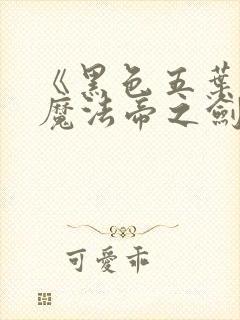 《黑色五葉
魔法帝之劍
可愛乖